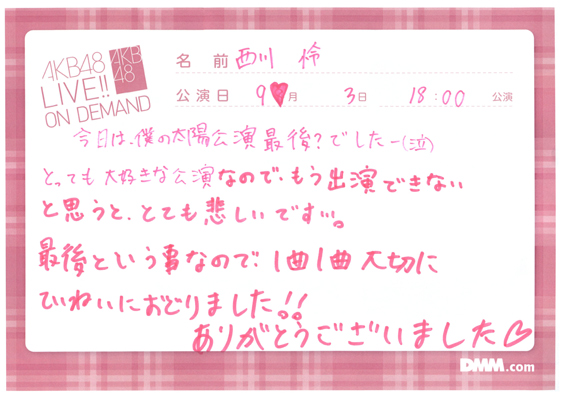 AKB48
LIVE!!
ON DEMAND
AKB
48
名 前 西川 怜
公演日 9月 3日 18:00 公演
今日は、僕の太陽公演 最後?でしたー(泣)
とっても 大好きな公演なので、もう出演できない
と思うと、とても悲しいです…。
最後という事なので、1曲1曲 大切に
ていねいにおどりました!!
ありがとうございました♡
DMM.com